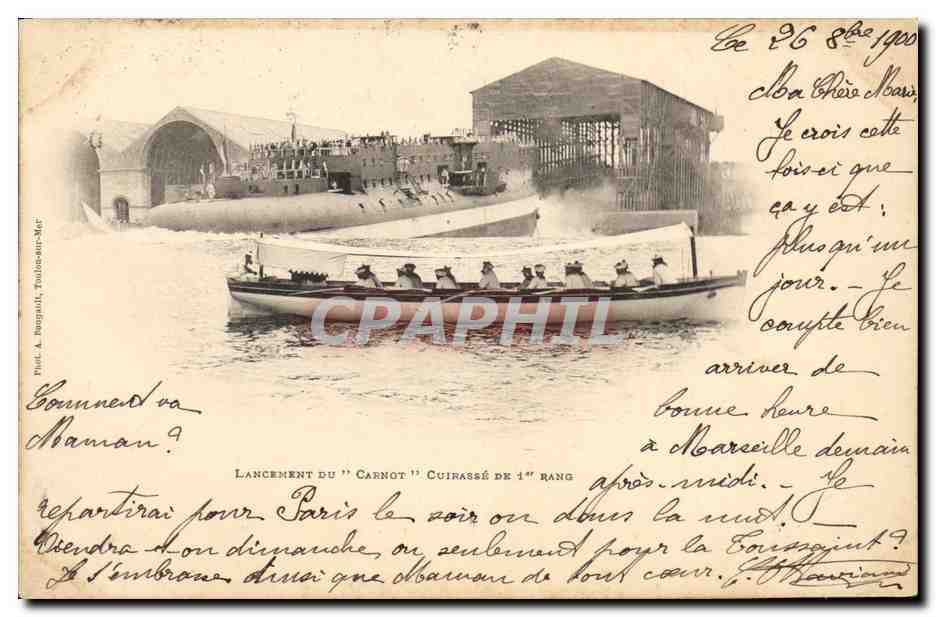 Le 26 8bre 1900
Ma Chère Marie,
Je crois cette
fois-ci que
ça y est :
plus qu'un
jour. - Je
compte bien
arriver de
bonne heure
à Marseille demain
après-midi. - Je
repartirai pour Paris le soir ou dans la nuit. -
Viendra-t-on dimanche ou seulement pour la Toussaint ?
Je t'embrasse ainsi que Maman de tout cœur.
Comment va
Maman ?
LANCEMENT DU "CARNOT" CUIRASSÉ DE 1er RANG
Phot. A. Bougault, Toulon-sur-Mer
CPAPHIL